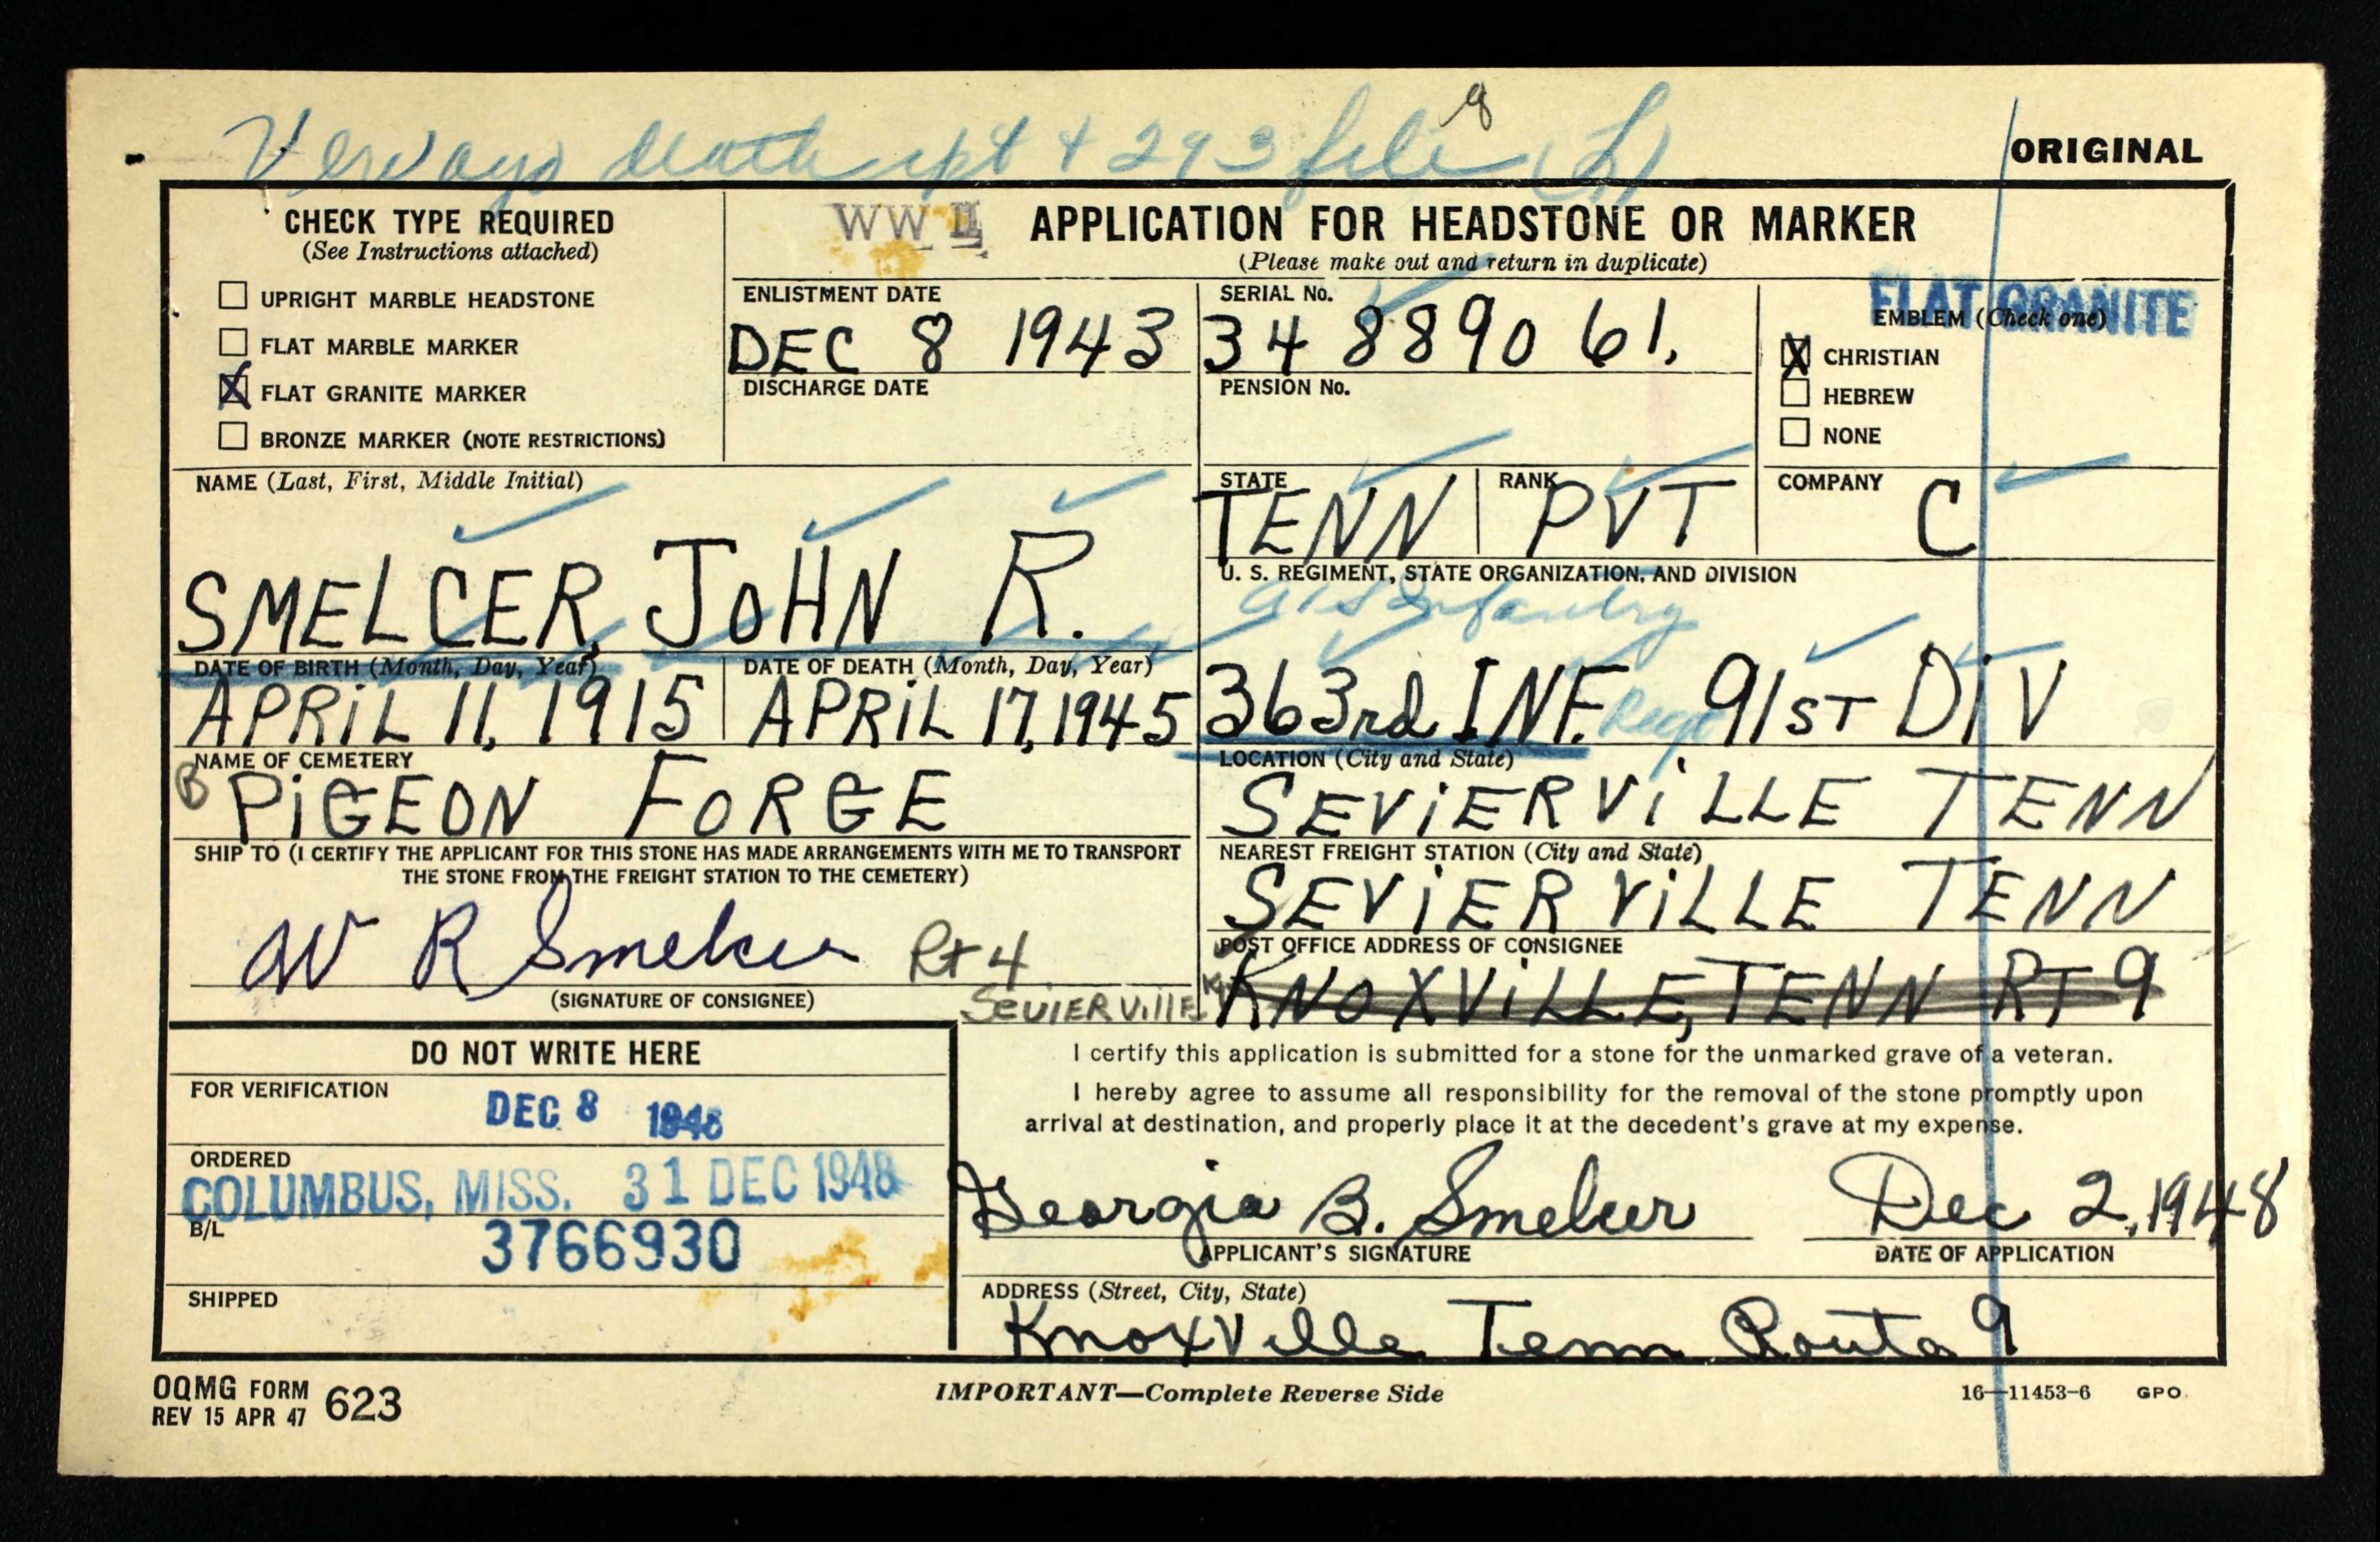 death rpt + 293 file (L)
ORIGINAL
CHECK TYPE REQUIRED
(See Instructions attached)
UPRIGHT MARBLE HEADSTONE
FLAT MARBLE MARKER
X FLAT GRANITE MARKER
BRONZE MARKER (NOTE RESTRICTIONS)
WW II
APPLICATION FOR HEADSTONE OR MARKER
(Please make out and return in duplicate)
ENLISTMENT DATE
DEC 8 1943
DISCHARGE DATE
SERIAL No.
34 8890 61.
PENSION No.
FLAT GRANITE
EMBLEM (Check one)
X CHRISTIAN
HEBREW
NONE
NAME (Last, First, Middle Initial)
SMELCER, JOHN R.
STATE
TENN
RANK
PVT
COMPANY
C
U. S. REGIMENT, STATE ORGANIZATION, AND DIVISION
91st Infantry
363rd INF. Regt 91ST DIV
DATE OF BIRTH (Month, Day, Year)
APRIL 11, 1915
DATE OF DEATH (Month, Day, Year)
APRIL 17, 1945
NAME OF CEMETERY
B PIGEON FORGE
LOCATION (City and State)
SEVIERVILLE TENN
SHIP TO (I CERTIFY THE APPLICANT FOR THIS STONE HAS MADE ARRANGEMENTS WITH ME TO TRANSPORT
THE STONE FROM THE FREIGHT STATION TO THE CEMETERY)
W R Smelcer Rt 4
SEVIERVILLE
(SIGNATURE OF CONSIGNEE)
NEAREST FREIGHT STATION (City and State)
SEVIERVILLE TENN
POST OFFICE ADDRESS OF CONSIGNEE
KNOXVILLE, TENN RT 9
DO NOT WRITE HERE
FOR VERIFICATION
DEC 8 1948
ORDERED
COLUMBUS, MISS. 31 DEC 1948
B/L
3766930
SHIPPED
I certify this application is submitted for a stone for the unmarked grave of a veteran.
I hereby agree to assume all responsibility for the removal of the stone promptly upon
arrival at destination, and properly place it at the decedent's grave at my expense.
Georgia B. Smelcer Dec 2, 1948
APPLICANT'S SIGNATURE
DATE OF APPLICATION
ADDRESS (Street, City, State)
Knoxville Tenn Route 9
OQMG FORM 623
REV 15 APR 47
IMPORTANT—Complete Reverse Side
16—11453-6 GPO